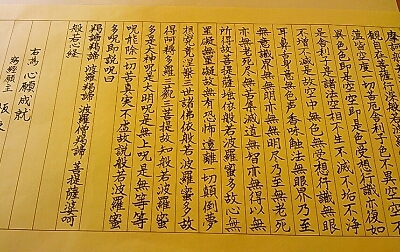 摩訶般若波羅蜜多心經
觀自在菩薩行深般若波羅蜜多時照見五
蘊皆空度一切苦厄舍利子色不異空空不
異色色即是空空即是色受想行識亦復如
是舍利子是諸法空相不生不滅不垢不淨
不增不減是故空中無色無受想行識無眼
耳鼻舌身意無色聲香味觸法無眼界乃至
無意識界無無明亦無無明盡乃至無老死
亦無老死盡無苦集滅道無智亦無得以無
所得故菩提薩埵依般若波羅蜜多故心無
罣礙無罣礙故無有恐怖遠離一切顛倒夢
想究竟涅槃三世諸佛依般若波羅蜜多故
得阿耨多羅三藐三菩提故知般若波羅蜜
多是大神呪是大明呪是無上呪是無等等
呪能除一切苦真實不虛故說般若波羅蜜
多呪即說呪曰
羯諦羯諦 波羅羯諦 波羅僧羯諦 菩提薩婆訶
般若心經
右為心願成就
寫經願主